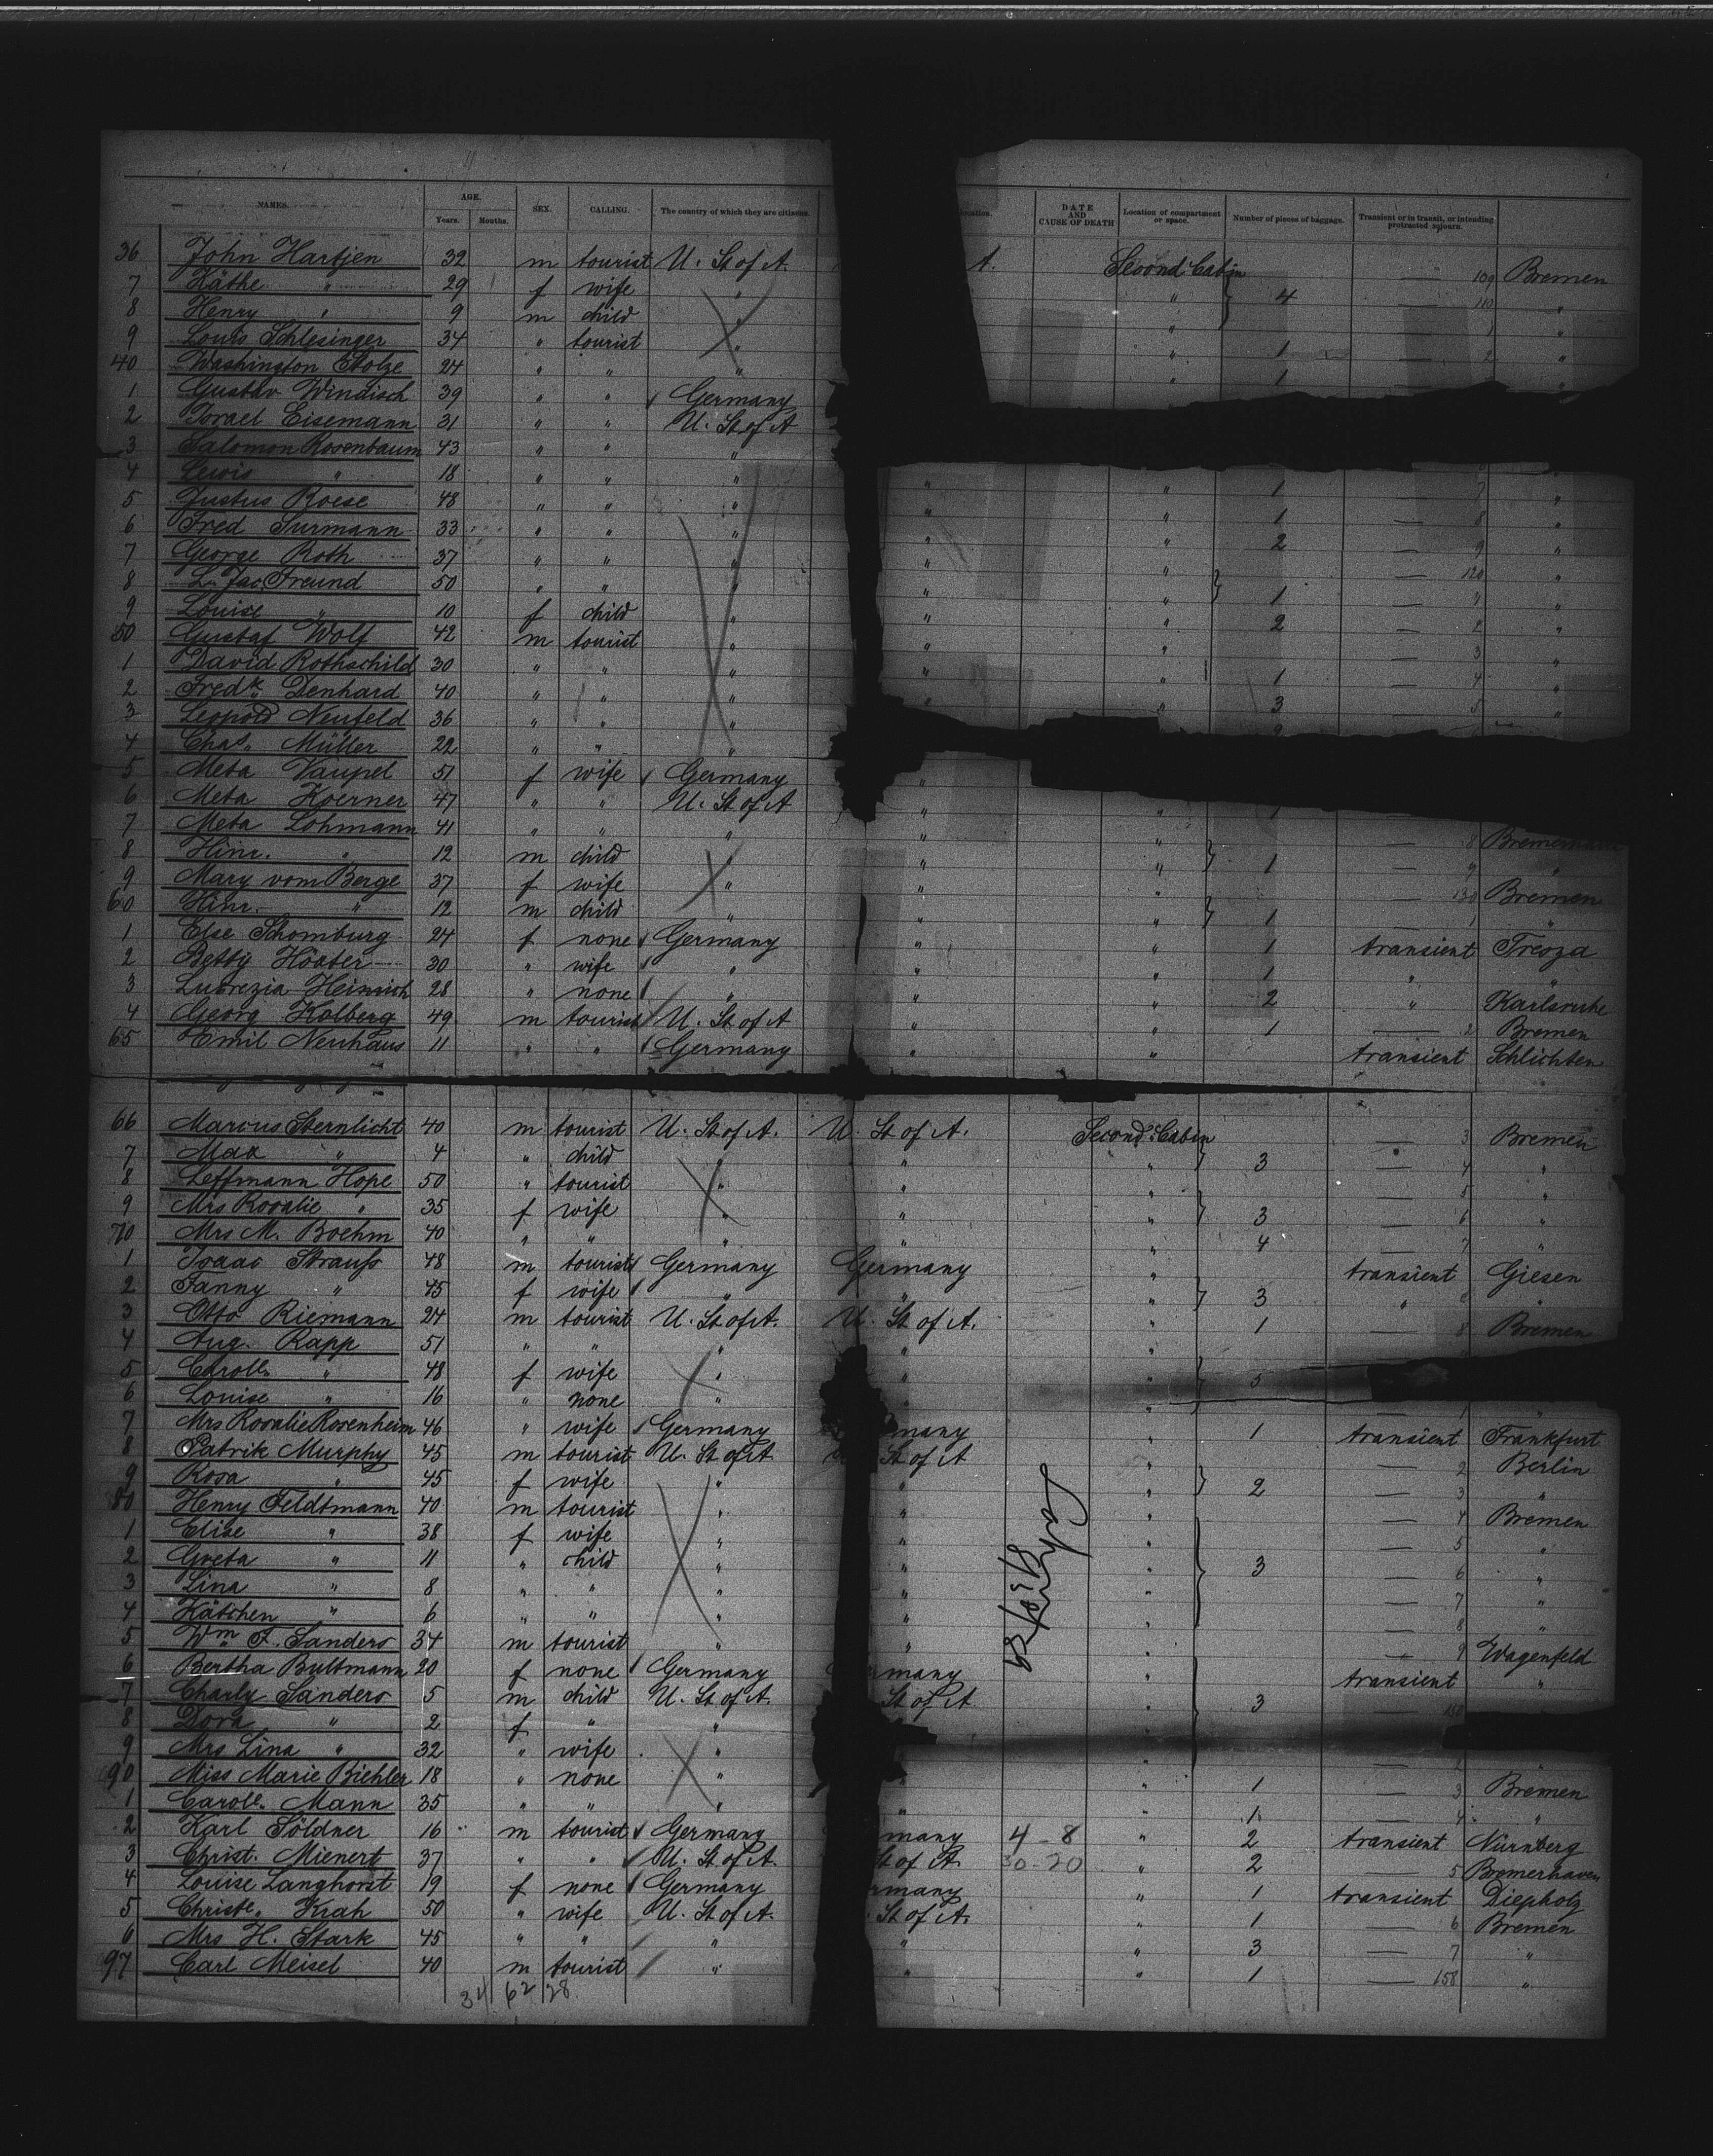 11
NAMES. AGE. SEX. CALLING. The country of which they are citizens. location. DATE AND CAUSE OF DEATH Location of compartment or space. Number of pieces of baggage. Transient or in transit, or intending protracted sojourn.
Years. Months.
36 John Hartjen 32 m tourist U. St of A. A. Second Cabin — 109 Bremen
7 Käthe " 29 f wife " " 4 — 110 "
8 Henry " 9 m child " " — 1 "
9 Louis Schlesinger 34 " tourist " " 1 — 2 "
40 Washington Stolze 24 " " " " 1 "
1 Gustav Windisch 39 " " Germany
2 Israel Eisemann 31 " " U. St of A
3 Salomon Rosenbaum 43 " " "
4 Lewis " 18 " " " "
5 Justus Roese 48 " " " " " 1 7 "
6 Fred Surmann 33 " " " " " 1 — 8 "
7 George Roth 37 " " " " " 2 — 9 "
8 L. Jac. Freund 50 " " " " " — 120 "
9 Louise " 10 f child " " " 1 — "
50 Gustaf Wolf 42 m tourist " " " 2 — 2 "
1 David Rothschild 30 " " " " " — 3 "
2 Fredk Denhard 40 " " " " " 1 — 4 "
3 Leopold Neufeld 36 " " " " " 3 — 5 "
4 Chas. Müller 22 " " "
5 Meta Vaupel 51 f wife Germany "
6 Meta Koerner 47 " " U. St of A " " 1
7 Meta Lohmann 41 " " " " " — 8
8 Hinr. " 12 m child " " " 1 — 9 "
9 Mary vom Berge 37 f wife " " " — 130 Bremen
60 Hinr. " 12 m child " " " 1 — 1 "
1 Else Schomburg 24 f none Germany " " 1 transient Treoza
2 Betty 30 " wife " " " 1 " "
3 Lucrezia Heinrich 28 " none " " " 2 " Karlsruhe
4 Georg Kolberg 49 m tourist U. St of A " " 1 — 2 Bremen
65 Emil Neuhaus 11 " " Germany " " transient Schlichten
66 Marcus Sternlicht 40 m tourist U. St of A. U. St of A. Second Cabin — 3 Bremen
7 Max " 4 " child " " " 3 — 4 "
8 Leffmann Hope 50 " tourist " " " — 5 "
9 Mrs Rosalie " 35 f wife " " " 3 — 6 "
70 Mrs M. Boehm 40 " " " " " 4 — 7 "
1 Isaac Strauss 48 m tourist Germany Germany " transient Giesen
2 Fanny " 45 f wife " " " 3 " "
3 Otto Riemann 24 m tourist U. St of A. U. St of A. " 1 — 8 Bremen
4 Aug. Rapp 51 " " " " "
5 Caroll. " 48 f wife " " " 5
6 Louise " 16 " none " " " — 1 "
7 Mrs Rosalie Rosenheim 46 " wife Germany many " 1 transient Frankfurt
8 Patrik Murphy 45 m tourist U. St of A St of A " — 2 Berlin
9 Rosa " 45 f wife " " " 2 — 3 "
80 Henry Feldtmann 40 m tourist " " " — 4 Bremen
1 Elise " 38 f wife " " " — 5 "
2 Greta " 11 " child " " " 3 — 6 "
3 Lina " 8 " " " " " — 7 "
4 Kätchen " 6 " " " " " — 8 "
5 Wm F. Sanders 34 m tourist " " " — 9 Wagenfeld
6 Bertha Bultmann 20 f none Germany many " transient "
7 Charly Sanders 5 m child U. St of A. St of A " 3 —
8 Dora " 2 f " " "
9 Mrs Lina " 32 " wife " " — 2
90 Miss Marie Biehler 18 " none " " " 1 — 3 Bremen
1 Caroll. Mann 35 " " " " " 1 — 4 "
2 Karl Söldner 16 m tourist Germany many 4-8 " 2 transient Nürnberg
3 Christ. Mienert 37 " " U. St of A. St of A. 30-20 " 2 — 5 Bremerhaven
4 Louise Langhorst 19 f none Germany rmany " 1 transient Diepholz
5 Christe. Krah 50 " wife U. St of A. St of A. " 1 — 6 Bremen
6 Mrs H. Stark 45 " " " " " 3 — 7 "
97 Carl Meisel 40 m tourist " " " 1 — 158 "
34 62 28